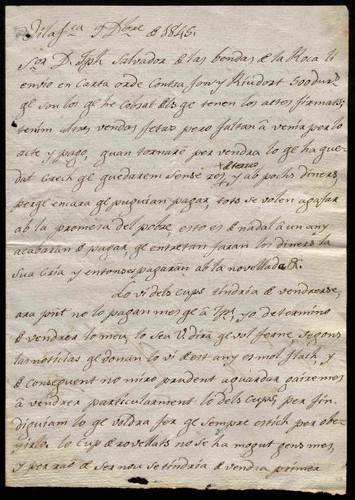 Vilafca 9 Dbre de 1845.
Sor D. Jph Salvador de las bendas de la Roca li
envio en Carta orde Contra Fony Riudort 500 dur.
qe son los qe he Cobrat dels qe tenen los actes firmats;
tenim altras vendas fetas pero faltan á venir per lo
acte y pago, quan tornaré per vendra lo qe ha que-
dat Crech qe quedarem sense res, y ab pochs diners,
perqe encara qe puguian pagar, tots se volen agafar
ab la promesa del pobre, esto es de nadal á un any
acabarán de pagar, qe entretan faran los diners la
sua Cria, y entonses pagaran ab la novelladas &.
Lo vi dels Cups tindria de vendrerse,
ara pero no lo pagan mes qe á, yo determino
de vendrer lo meu, lo seu Vd dirá qe vol ferne, segons
las noticias qe donan lo vi de est any es mol flach, y
de Conseguent no miro prudent aguardar gaire mes
á vendrer particularment lo dels Cups, per fin
diguiam lo qe voldra fer qe sempre estich per obe-
hirlo. lo Cup de rovellats no se ha mogut gens mes,
y per raó de ser nou se tindria de vendra primer